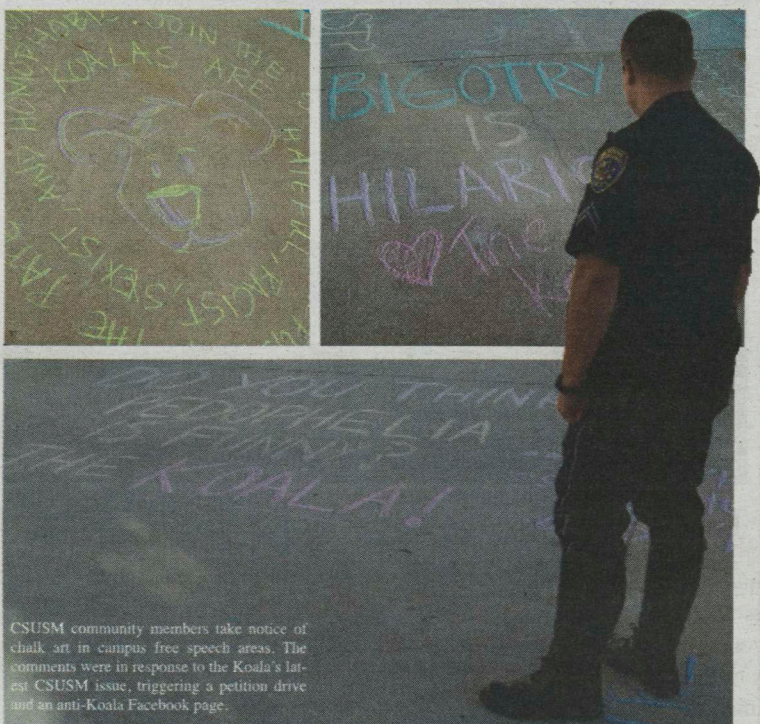 AND HOMOPHOBIC. JOIN THE
KOALAS ARE
HATEFUL, RACIST, SEXIST,
THE
BIGOTRY
IS
The
DO YOU THINK
PEDOPHELIA
IS FUNNY?
THE KOALA!
CSUSM community members take notice of
chalk art in campus free speech areas. The
comments were in response to the Koala's lat-
est CSUSM issue, triggering a petition drive
and an anti-Koala Facebook page.